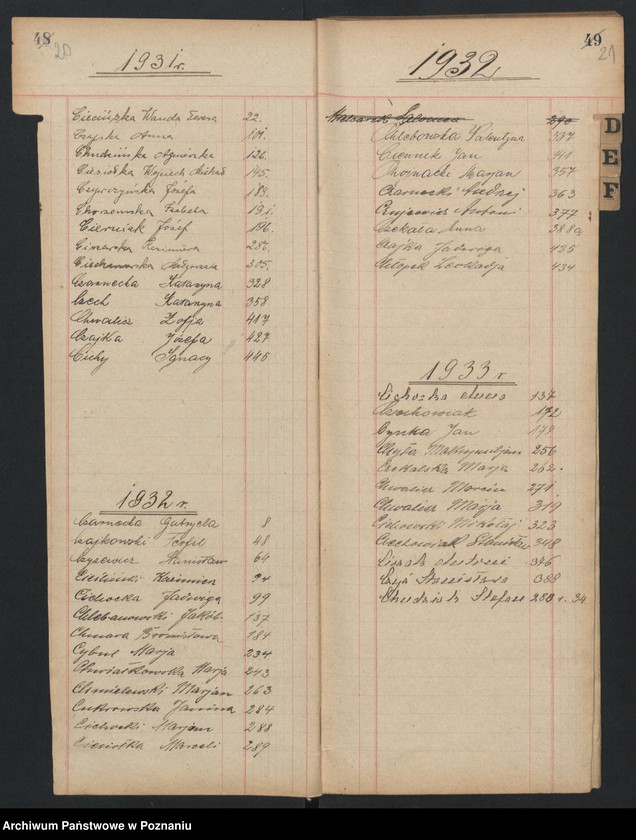 48
20
1931 r.
Ciecińska Wanda Teresa 22.
Czajka Anna 101.
Chudzińska Agnieszka 126.
Ciesiołka Wojciech Michał 145.
Cieprzyńska Józefa 183.
Chorzewska Izabela 191.
Cierniak Józef 196.
Ciszewska Kazimiera 287.
Ciechanowska 305.
Czarnecka Katarzyna 328
Czech Katarzyna 358
Chwalisz Zofja 417
Czajka Józefa 427
Cichy Ignacy 445
1932 r.
Czarnecka Gabryela 8
Czajkowski Teofil 48
Czysewicz Stanisław 64
Cieśliński Kazimierz 94
Cichocka Jadwiga 99
Chlebanowski Jakób 137
Chmara Bronisława 184
Cybul Marja 234
Chwiałkowska Marja 243
Chmielewski Marjan 263
Cukrowska Janina 284
Cichocki Marjan 288
Ciesiołka Marceli 289
49
21
1932
290
Chlebowska Walentyna 337
Ciennik Jan 341
Chojnacki Marjan 357
Czarnecki Andrzej 363
Antoni 377
Czekała Anna 388a
Czajka Jadwiga 425
Chłopek Leokadja 434
1933 r.
137
Czechowiak 172
Cynka Jan 178
Chyła Maksymiljan 256
Czekalska Marja 262.
Chwalisz Marcin 271
Chwalisz Marja 319
Cichowski Mikołaj 323
Czechowiak Stanisław 348
376
Czyż Stanisława 388
Chudziak Stefan 280 r. 34
D
E
F
Archiwum Państwowe w Poznaniu